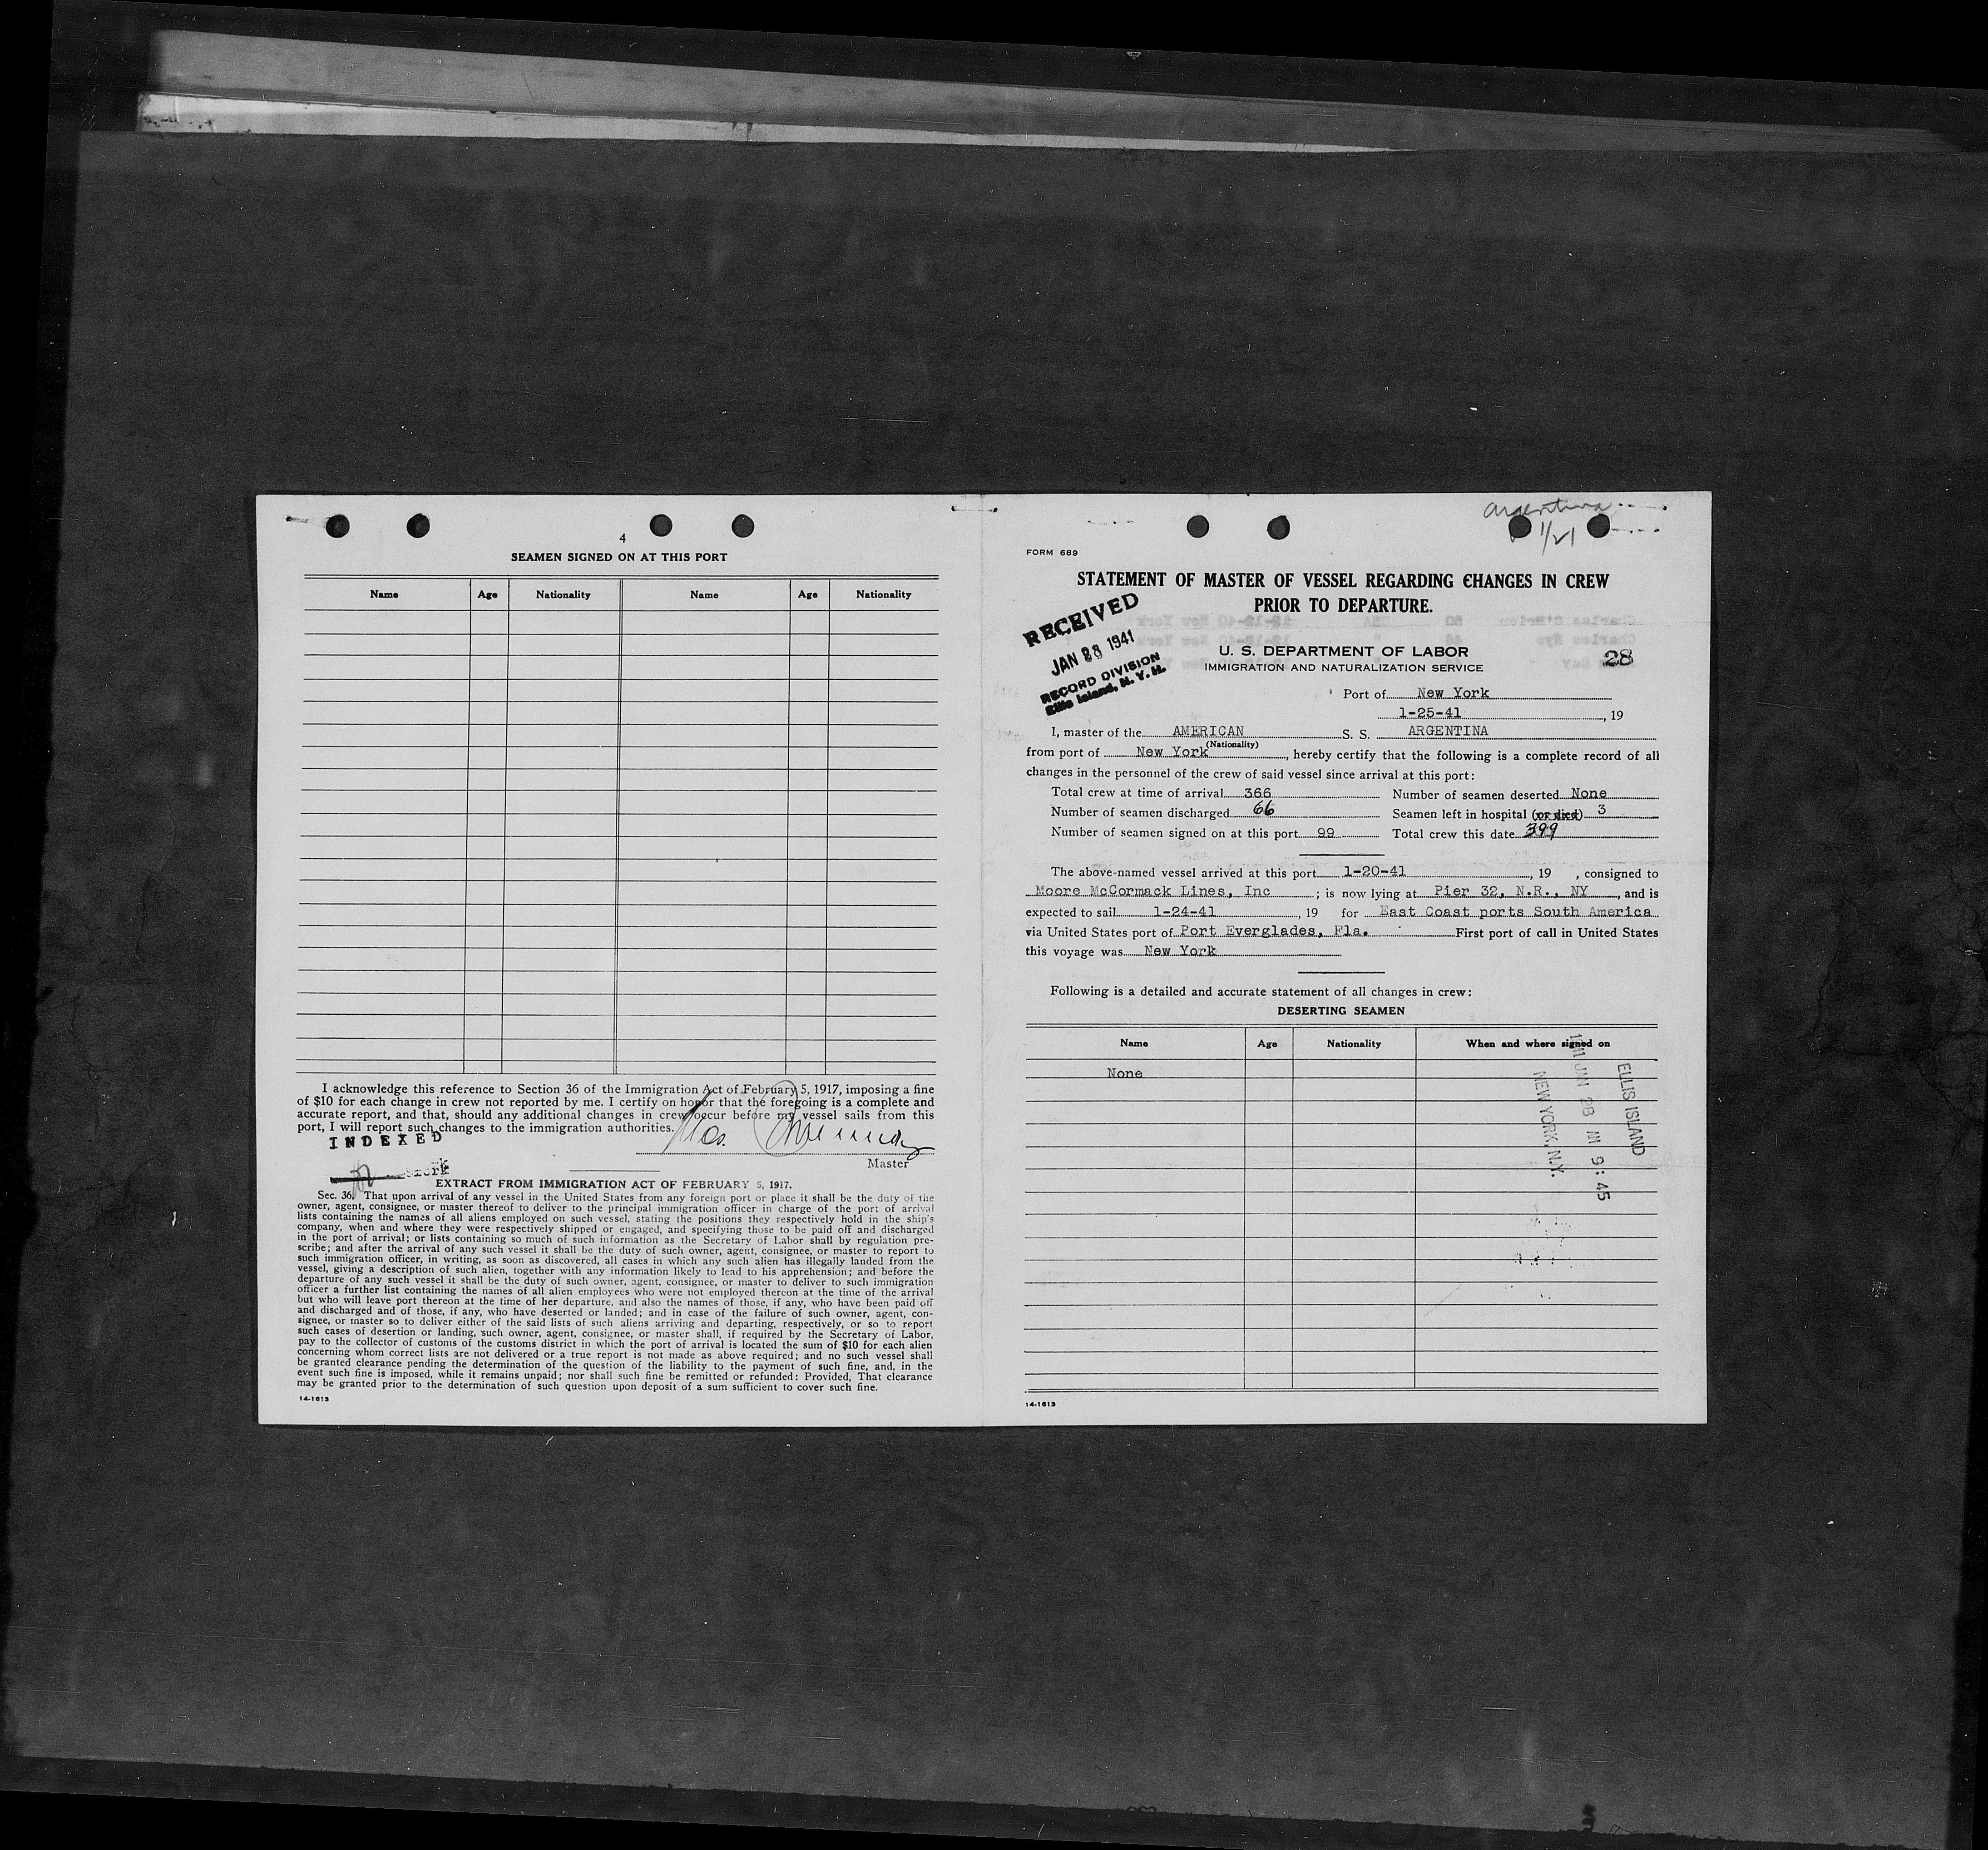 4
SEAMEN SIGNED ON AT THIS PORT
Name Age Nationality Name Age Nationality
I acknowledge this reference to Section 36 of the Immigration Act of February 5, 1917, imposing a fine
of $10 for each change in crew not reported by me. I certify on honor that the foregoing is a complete and
accurate report, and that, should any additional changes in crew occur before my vessel sails from this
port, I will report such changes to the immigration authorities.
INDEXED
Master
EXTRACT FROM IMMIGRATION ACT OF FEBRUARY 5, 1917.
Sec. 36. That upon arrival of any vessel in the United States from any foreign port or place it shall be the duty of the
owner, agent, consignee, or master thereof to deliver to the principal immigration officer in charge of the port of arrival
lists containing the names of all aliens employed on such vessel, stating the positions they respectively hold in the ship's
company, when and where they were respectively shipped or engaged, and specifying those to be paid off and discharged
in the port of arrival; or lists containing so much of such information as the Secretary of Labor shall by regulation pre-
scribe; and after the arrival of any such vessel it shall be the duty of such owner, agent, consignee, or master to report to
such immigration officer, in writing, as soon as discovered, all cases in which any such alien has illegally landed from the
vessel, giving a description of such alien, together with any information likely to lead to his apprehension; and before the
departure of any such vessel it shall be the duty of such owner, agent, consignee, or master to deliver to such immigration
officer a further list containing the names of all alien employees who were not employed thereon at the time of the arrival
but who will leave port thereon at the time of her departure, and also the names of those, if any, who have been paid off
and discharged and of those, if any, who have deserted or landed; and in case of the failure of such owner, agent, con-
signee, or master so to deliver either of the said lists of such aliens arriving and departing, respectively, or so to report
such cases of desertion or landing, such owner, agent, consignee, or master shall, if required by the Secretary of Labor,
pay to the collector of customs of the customs district in which the port of arrival is located the sum of $10 for each alien
concerning whom correct lists are not delivered or a true report is not made as above required; and no such vessel shall
be granted clearance pending the determination of the question of the liability to the payment of such fine, and, in the
event such fine is imposed, while it remains unpaid; nor shall such fine be remitted or refunded: Provided, That clearance
may be granted prior to the determination of such question upon deposit of a sum sufficient to cover such fine.
14-1613
Argentina
1/21
FORM 689
STATEMENT OF MASTER OF VESSEL REGARDING CHANGES IN CREW
PRIOR TO DEPARTURE.
RECEIVED
JAN 28 1941
RECORD DIVISION
Ellis Island, N. Y. H.
U. S. DEPARTMENT OF LABOR
IMMIGRATION AND NATURALIZATION SERVICE
28
Port of New York
1-25-41, 19
I, master of the AMERICAN S. S. ARGENTINA
(Nationality)
from port of New York, hereby certify that the following is a complete record of all
changes in the personnel of the crew of said vessel since arrival at this port:
Total crew at time of arrival 366 Number of seamen deserted None
Number of seamen discharged 66 Seamen left in hospital (or died) 3
Number of seamen signed on at this port 99 Total crew this date 399
The above-named vessel arrived at this port 1-20-41, 19 , consigned to
Moore McCormack Lines, Inc ; is now lying at Pier 32, N.R., NY, and is
expected to sail 1-24-41, 19 for East Coast ports South America
via United States port of Port Everglades, Fla. First port of call in United States
this voyage was New York
Following is a detailed and accurate statement of all changes in crew:
DESERTING SEAMEN
Name Age Nationality When and where signed on
None
ELLIS ISLAND
1941 JAN 28 AM 9:45
NEW YORK, N.Y.
14-1613